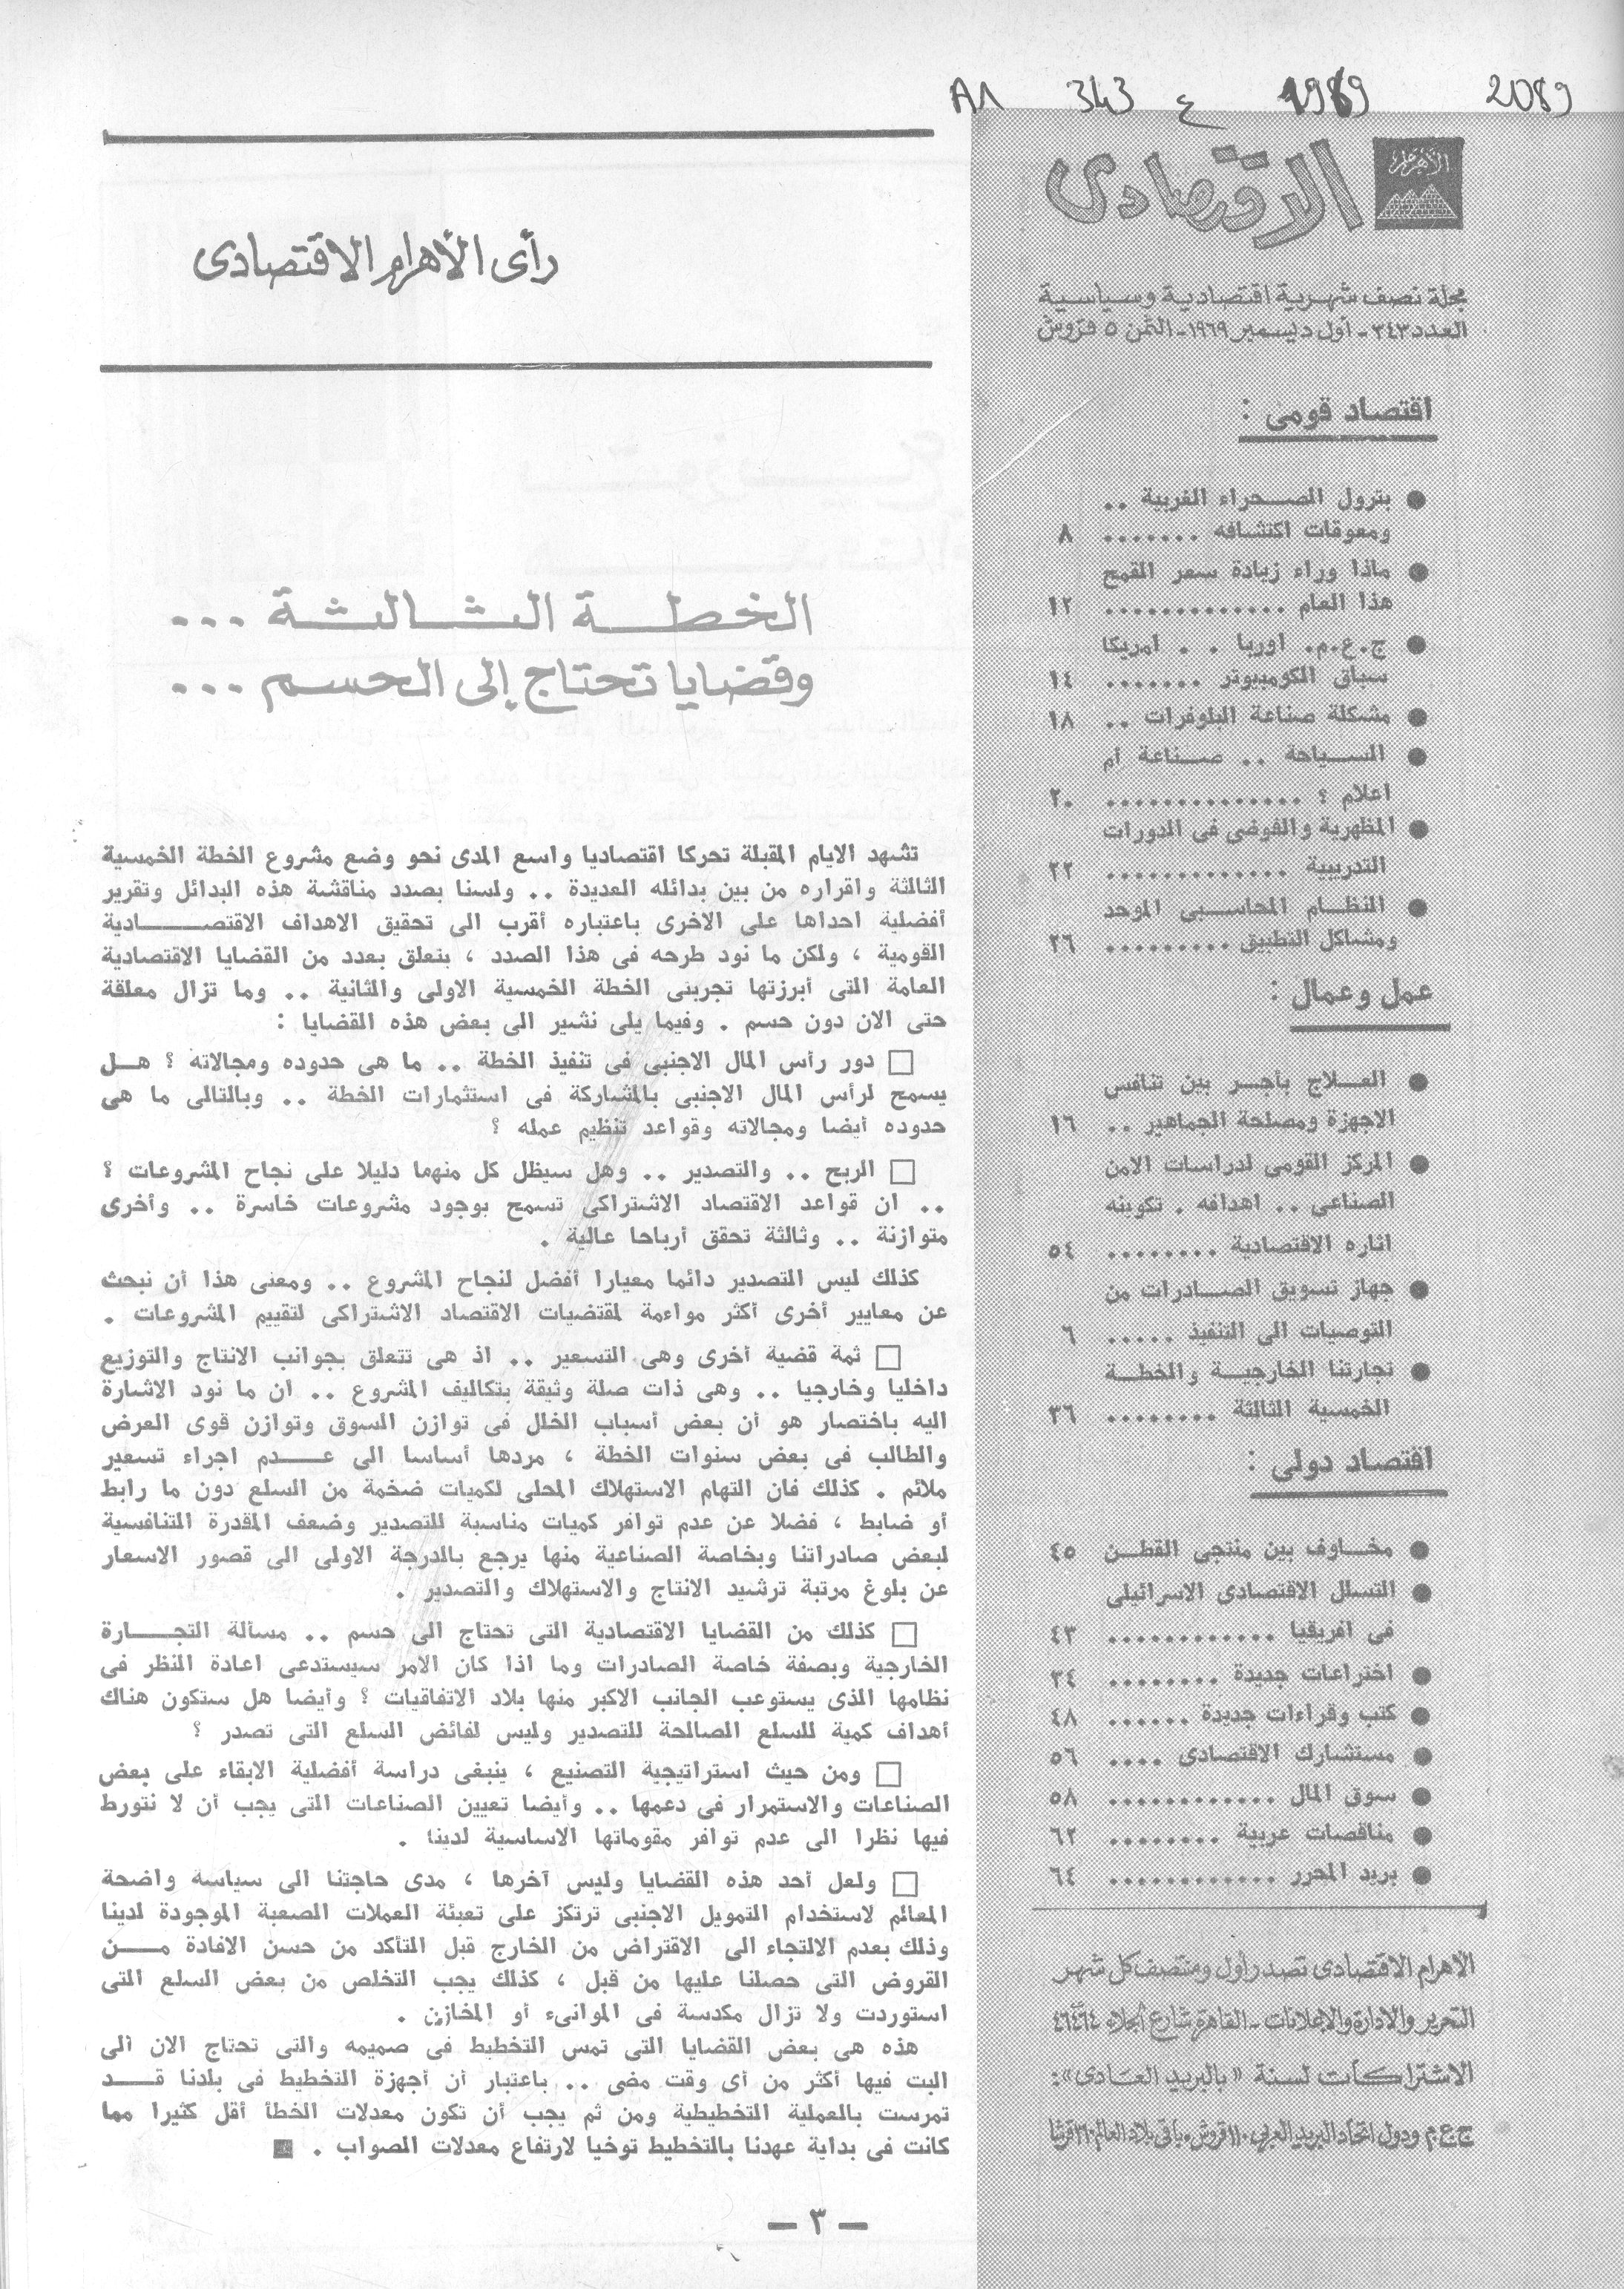 A1 343 ع 1969 2089
الأهرام
الاقتصادى
مجلة نصف شهرية اقتصادية وسياسية
العدد ٣٤٣ - أول ديسمبر ١٩٦٩ - الثمن ٥ قروش
اقتصاد قومى :
● بترول الصحراء الغربية ..
ومعوقات اكتشافه ....... ٨
● ماذا وراء زيادة سعر القمح
هذا العام ............. ١٢
● ج.ع.م. اوربا . . امريكا
سباق الكومبيوتر ....... ١٤
● مشكلة صناعة البلوفرات .. ١٨
● السياحة .. صناعة ام
اعلام ؟ .............. ٢٠
● المظهرية والفوضى فى الدورات
التدريبية ............. ٢٢
● النظام المحاسبى الموحد
ومشاكل التطبيق ......... ٢٦
عمل وعمال :
● العلاج بأجر بين تنافس
الاجهزة ومصلحة الجماهير .. ١٦
● المركز القومى لدراسات الامن
الصناعى .. اهدافه . تكوينه
اثاره الاقتصادية ........ ٥٤
● جهاز تسويق الصادرات من
التوصيات الى التنفيذ ..... ٦
● تجارتنا الخارجية والخطة
الخمسية الثالثة ........ ٣٦
اقتصاد دولى :
● مخاوف بين منتجى القطن ٤٥
● التسلل الاقتصادى الاسرائيلى
فى افريقيا ............ ٤٣
● اختراعات جديدة ........ ٣٤
● كتب وقراءات جديدة ...... ٤٨
● مستشارك الاقتصادى .... ٥٦
● سوق المال ............ ٥٨
● مناقصات عربية ........ ٦٢
● بريد المحرر ............ ٦٤
الأهرام الاقتصادى تصدر أول ومنتصف كل شهر
التحرير والادارة والاعلانات - القاهرة شارع الجلاء ٤٦٤٦٤
الاشتراكات لسنة « بالبريد العادى » :
ج.ع.م ودول اتحاد البريد العربى ١١٠ قروش، باقى بلاد العالم ٢٦٠ قرشا
رأى الأهرام الاقتصادى
الخطة الثالثة ...
وقضايا تحتاج إلى الحسم ...
تشهد الايام المقبلة تحركا اقتصاديا واسع المدى نحو وضع مشروع الخطة الخمسية
الثالثة واقراره من بين بدائله العديدة .. ولسنا بصدد مناقشة هذه البدائل وتقرير
أفضلية احداها على الاخرى باعتباره أقرب الى تحقيق الاهداف الاقتصادية
القومية ، ولكن ما نود طرحه فى هذا الصدد ، يتعلق بعدد من القضايا الاقتصادية
العامة التى أبرزتها تجربتى الخطة الخمسية الاولى والثانية .. وما تزال معلقة
حتى الان دون حسم . وفيما يلى نشير الى بعض هذه القضايا :
□ دور رأس المال الاجنبى فى تنفيذ الخطة .. ما هى حدوده ومجالاته ؟ هل
يسمح لرأس المال الاجنبى بالمشاركة فى استثمارات الخطة .. وبالتالى ما هى
حدوده أيضا ومجالاته وقواعد تنظيم عمله ؟
□ الربح .. والتصدير .. وهل سيظل كل منهما دليلا على نجاح المشروعات ؟
.. ان قواعد الاقتصاد الاشتراكى تسمح بوجود مشروعات خاسرة .. وأخرى
متوازنة .. وثالثة تحقق أرباحا عالية .
كذلك ليس التصدير دائما معيارا أفضل لنجاح المشروع .. ومعنى هذا أن نبحث
عن معايير أخرى أكثر مواءمة لمقتضيات الاقتصاد الاشتراكى لتقييم المشروعات .
□ ثمة قضية أخرى وهى التسعير .. اذ هى تتعلق بجوانب الانتاج والتوزيع
داخليا وخارجيا .. وهى ذات صلة وثيقة بتكاليف المشروع .. ان ما نود الاشارة
اليه باختصار هو أن بعض أسباب الخلل فى توازن السوق وتوازن قوى العرض
والطالب فى بعض سنوات الخطة ، مردها أساسا الى عدم اجراء تسعير
ملائم . كذلك فان التهام الاستهلاك المحلى لكميات ضخمة من السلع دون ما رابط
أو ضابط ، فضلا عن عدم توافر كميات مناسبة للتصدير وضعف المقدرة التنافسية
لبعض صادراتنا وبخاصة الصناعية منها يرجع بالدرجة الاولى الى قصور الاسعار
عن بلوغ مرتبة ترشيد الانتاج والاستهلاك والتصدير .
□ كذلك من القضايا الاقتصادية التى تحتاج الى حسم .. مسألة التجارة
الخارجية وبصفة خاصة الصادرات وما اذا كان الامر سيستدعى اعادة النظر فى
نظامها الذى يستوعب الجانب الاكبر منها بلاد الاتفاقيات ؟ وأيضا هل ستكون هناك
أهداف كمية للسلع الصالحة للتصدير وليس لفائض السلع التى تصدر ؟
□ ومن حيث استراتيجية التصنيع ، ينبغى دراسة أفضلية الابقاء على بعض
الصناعات والاستمرار فى دعمها .. وأيضا تعيين الصناعات التى يجب أن لا نتورط
فيها نظرا الى عدم توافر مقوماتها الاساسية لدينا .
□ ولعل أحد هذه القضايا وليس آخرها ، مدى حاجتنا الى سياسة واضحة
المعالم لاستخدام التمويل الاجنبى ترتكز على تعبئة العملات الصعبة الموجودة لدينا
وذلك بعدم الالتجاء الى الاقتراض من الخارج قبل التأكد من حسن الافادة من
القروض التى حصلنا عليها من قبل ، كذلك يجب التخلص من بعض السلع التى
استوردت ولا تزال مكدسة فى الموانىء أو المخازن .
هذه هى بعض القضايا التى تمس التخطيط فى صميمه والتى تحتاج الان الى
البت فيها أكثر من أى وقت مضى .. باعتبار أن أجهزة التخطيط فى بلدنا قد
تمرست بالعملية التخطيطية ومن ثم يجب أن تكون معدلات الخطأ أقل كثيرا مما
كانت فى بداية عهدنا بالتخطيط توخيا لارتفاع معدلات الصواب . ■
— ٣ —